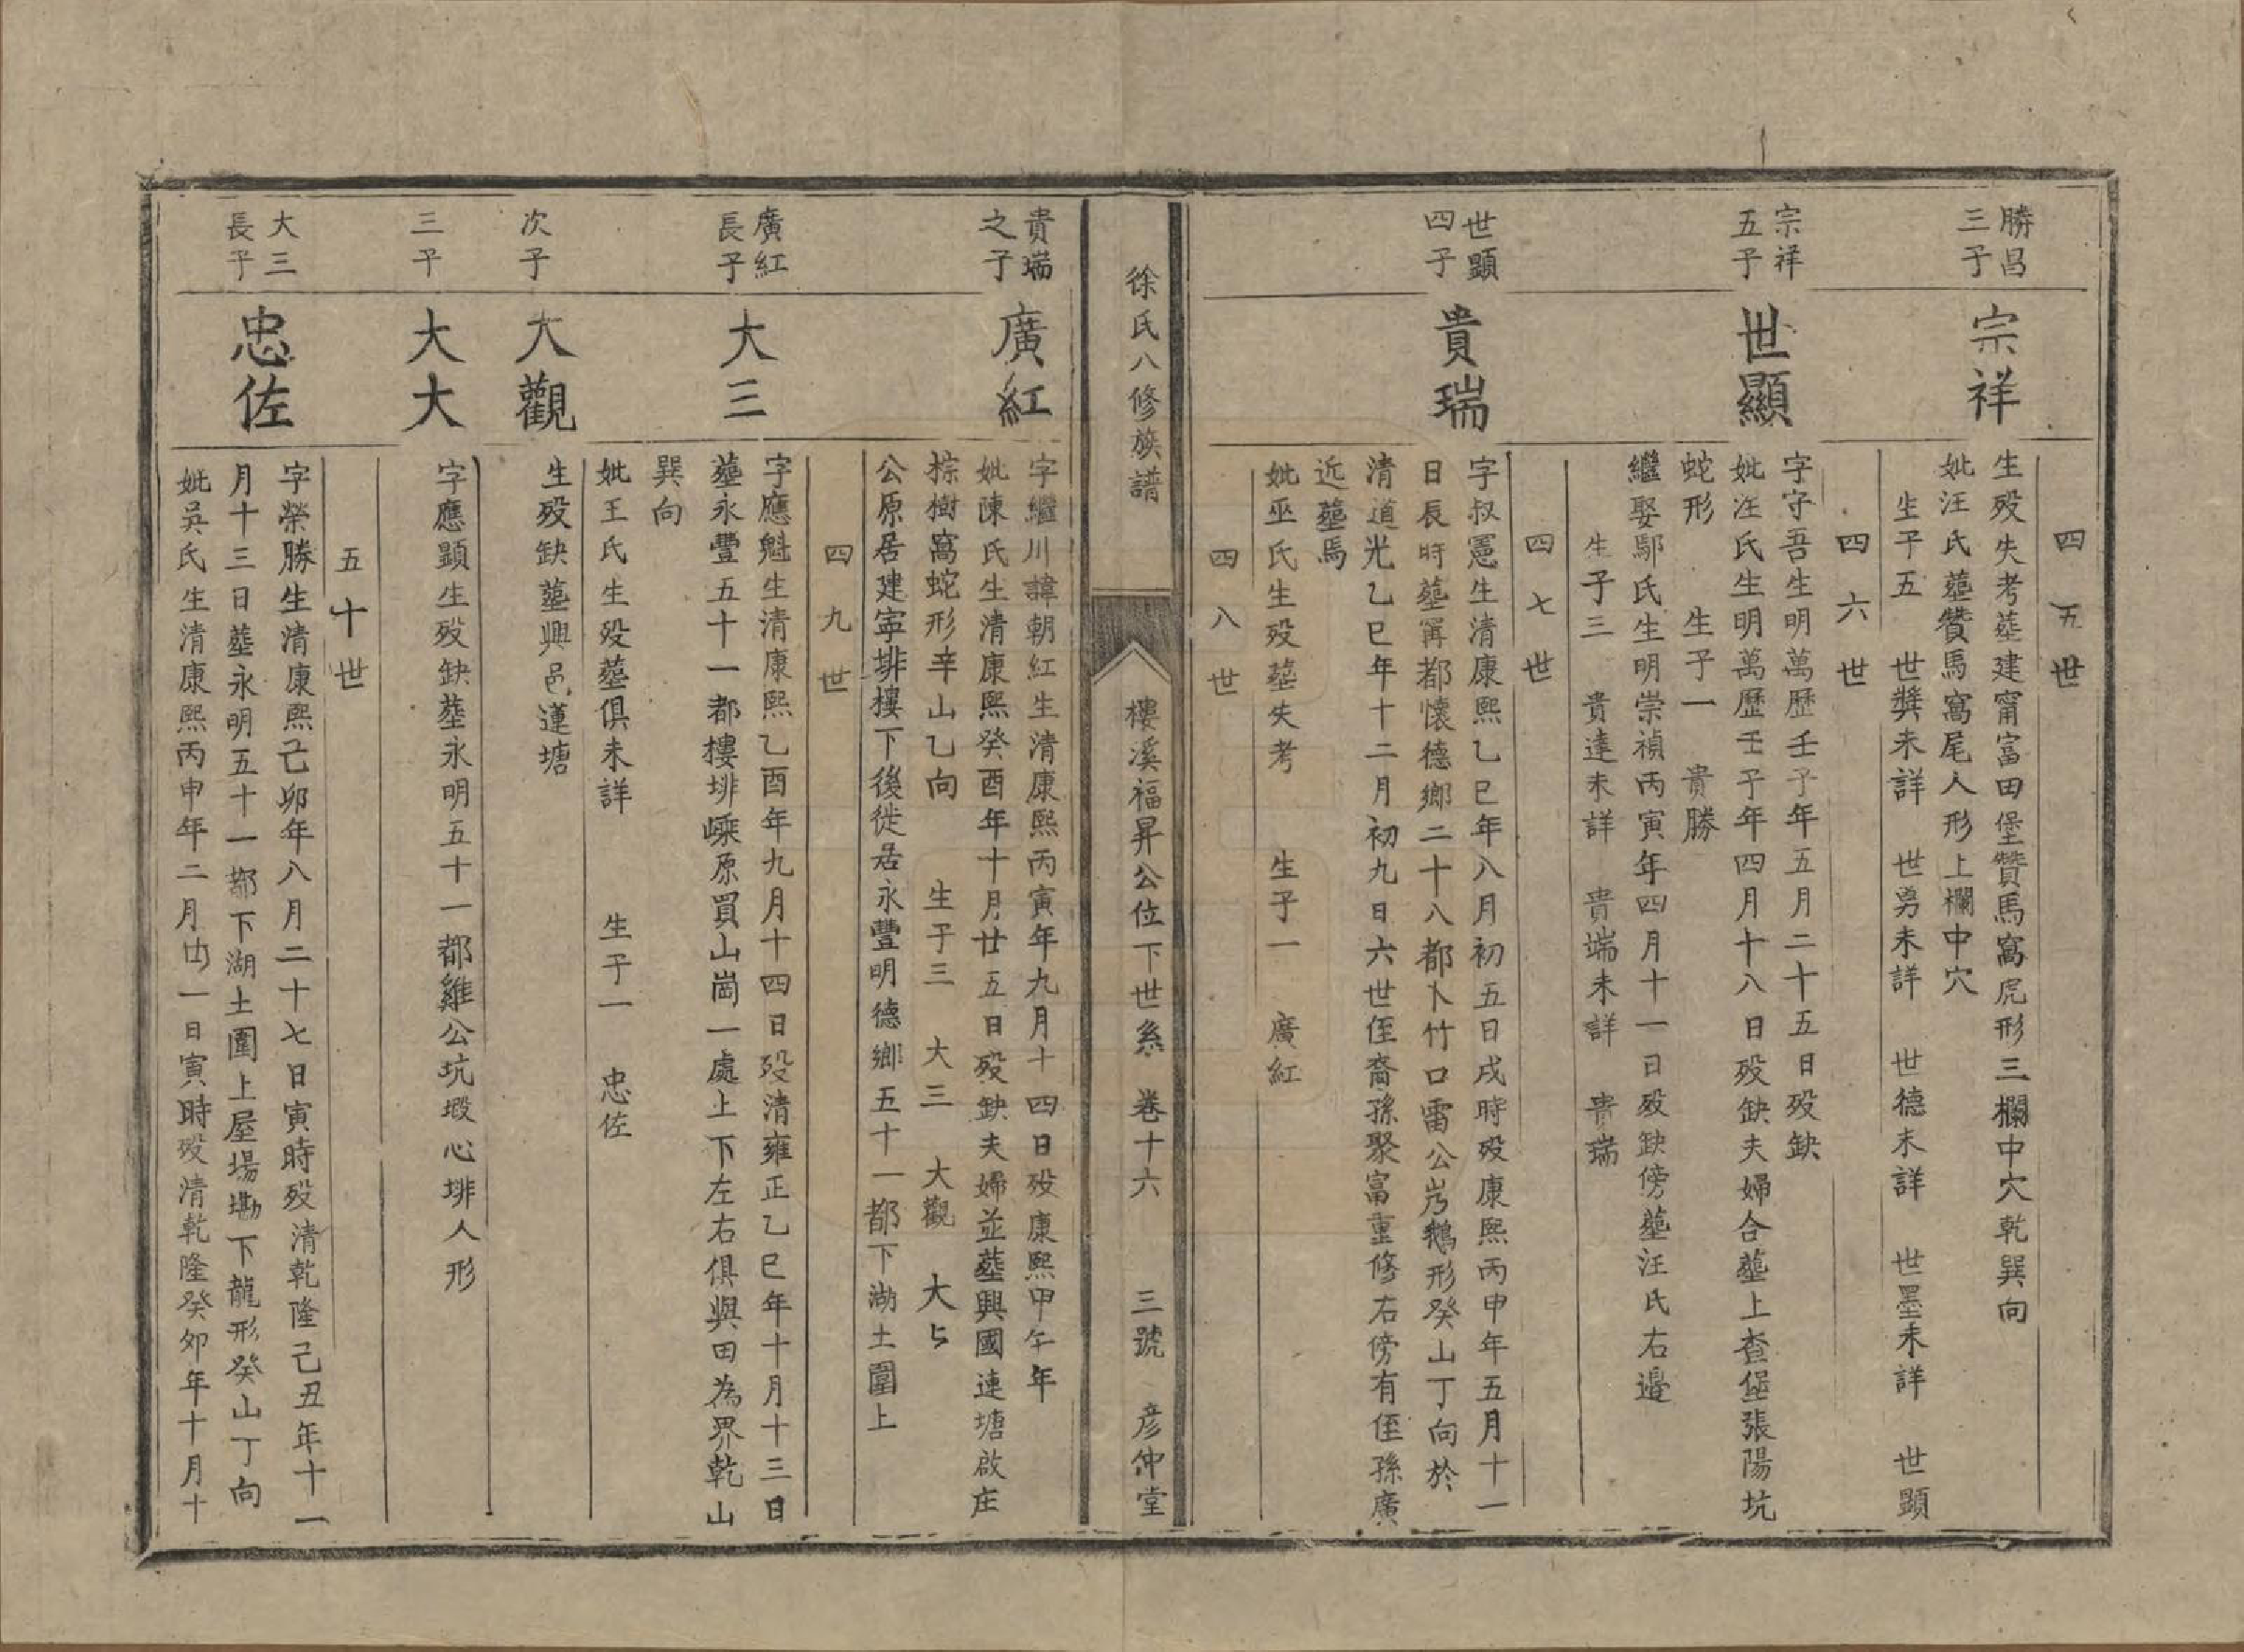 四五世
勝昌
三子
宗祥
生歿失考墓建甯富田堡贊馬窩虎形三欄中穴乾巽向
妣汪氏墓贊馬窩尾人形上欄中穴
生子五 世獎未詳 世勇未詳 世德未詳 世墨未詳 世顯
四六世
宗祥
五子
世顯
字守吾生明萬歷壬子年五月二十五日歿缺
妣汪氏生明萬歷壬子年四月十八日歿缺夫婦合墓上查堡張陽坑
蛇形 生子一 貴勝
繼娶鄢氏生明崇禎丙寅年四月十一日歿缺傍墓汪氏右邊
生子三 貴達未詳 貴端未詳 貴瑞
四七世
世顯
四子
貴瑞
字叔憲生清康熙乙巳年八月初五日戌時歿康熙丙申年五月十一
日辰時墓甯都懷德鄉二十八都卜竹口雷公岃鵝形癸山丁向於
清道光乙巳年十二月初九日六世侄裔孫聚富重修右傍有侄孫廣
近墓焉
妣巫氏生歿墓失考 生子一 廣紅
四八世
徐氏八修族譜
樓溪福昇公位下世系 卷十六 三號 彦仲堂
貴瑞
之子
廣紅
字繼川諱朝紅生清康熙丙寅年九月十四日歿康熙甲午年
妣陳氏生清康熙癸酉年十月廿五日歿缺夫婦並墓興國連塘啟庄
棕樹窩蛇形辛山乙向 生子三 大三 大觀 大大
公原居建寧排樓下後徙居永豐明德鄉五十一都下湖土圍上
四九世
廣紅
長子
大三
字應魁生清康熙乙酉年九月十四日歿清雍正乙巳年十月十三日
墓永豐五十一都樓排嵊原買山崗一處上下左右俱與田為界乾山
巽向
妣王氏生歿墓俱未詳 生子一 忠佐
次子
大觀
生歿缺墓興邑蓮塘
三子
大大
字應顕生歿缺墓永明五十一都雞公坑塅心排人形
五十世
大三
長子
忠佐
字榮勝生清康熙己卯年八月二十七日寅時歿清乾隆己丑年十一
月十三日墓永明五十一都下湖土圍上屋場墈下龍形癸山丁向
妣吳氏生清康熙丙申年二月廿一日寅時歿清乾隆癸卯年十月十